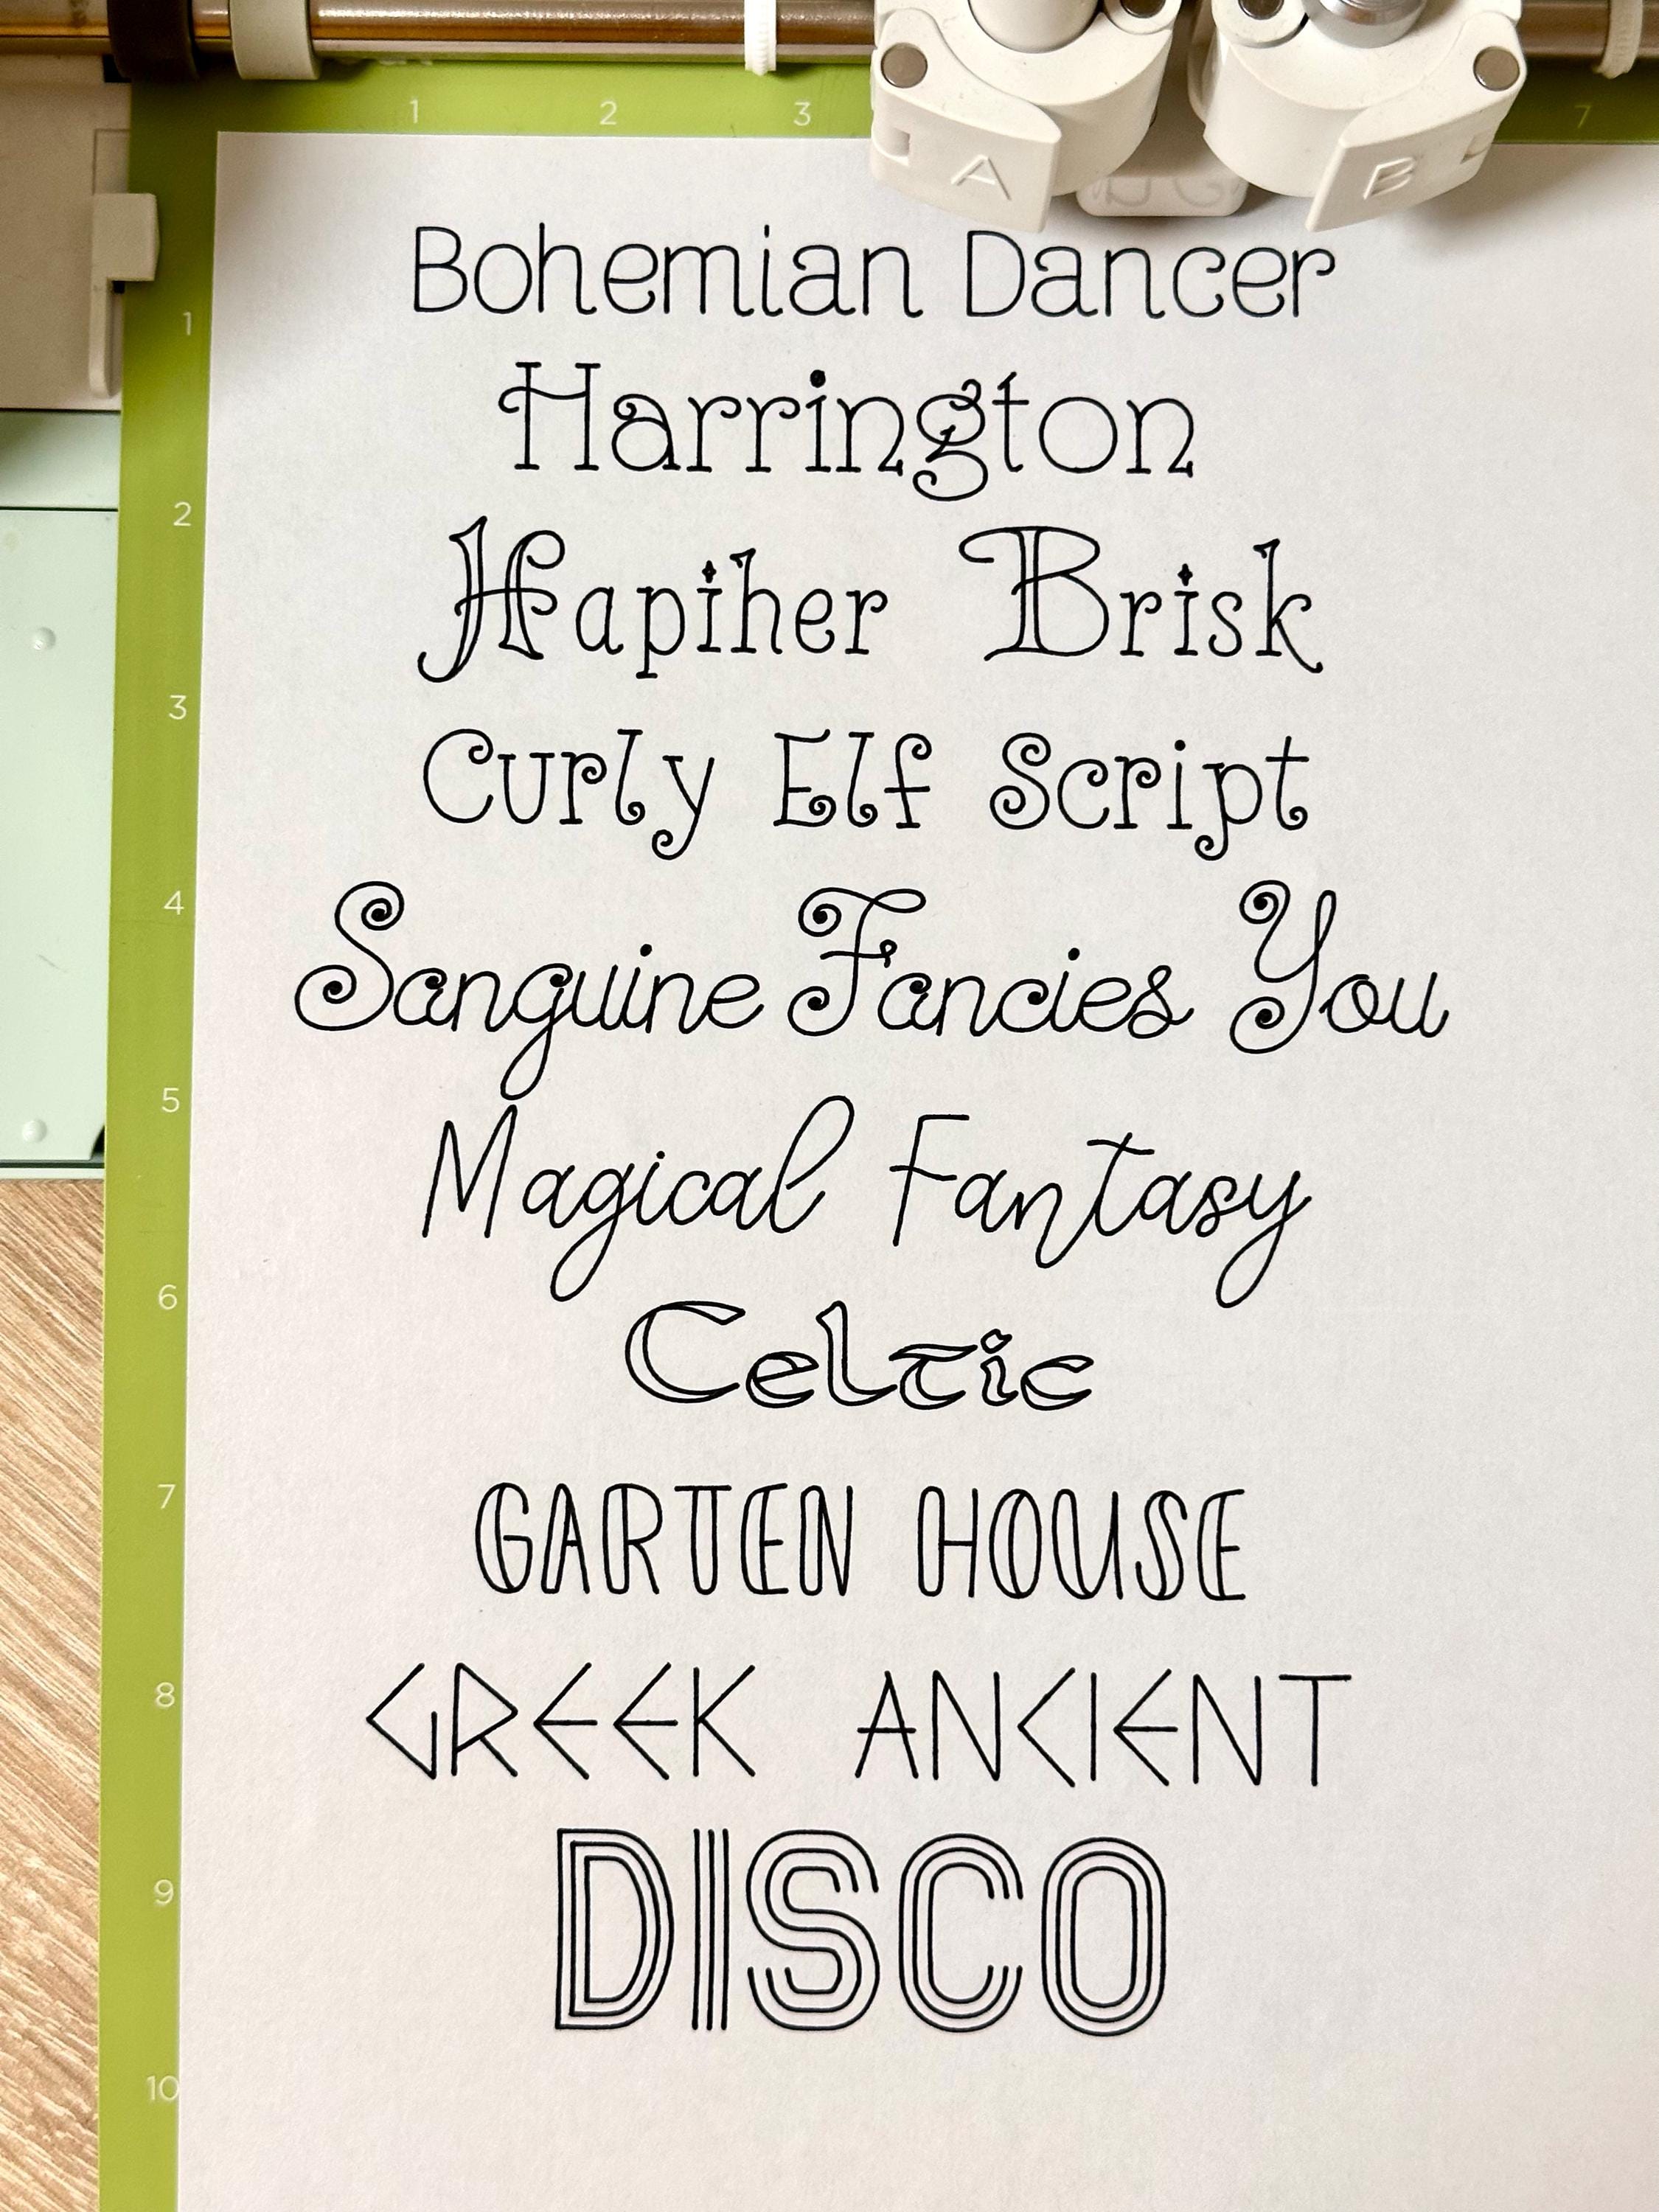 1 2 3 7
A B
Bohemian Dancer
1
Harrington
2
Hapiher Brisk
3
Curly Elf Script
4
Sanguine Fancies You
5
Magical Fantasy
6
Celtic
7
GARTEN HOUSE
8
GREEK ANCIENT
9
DISCO
10